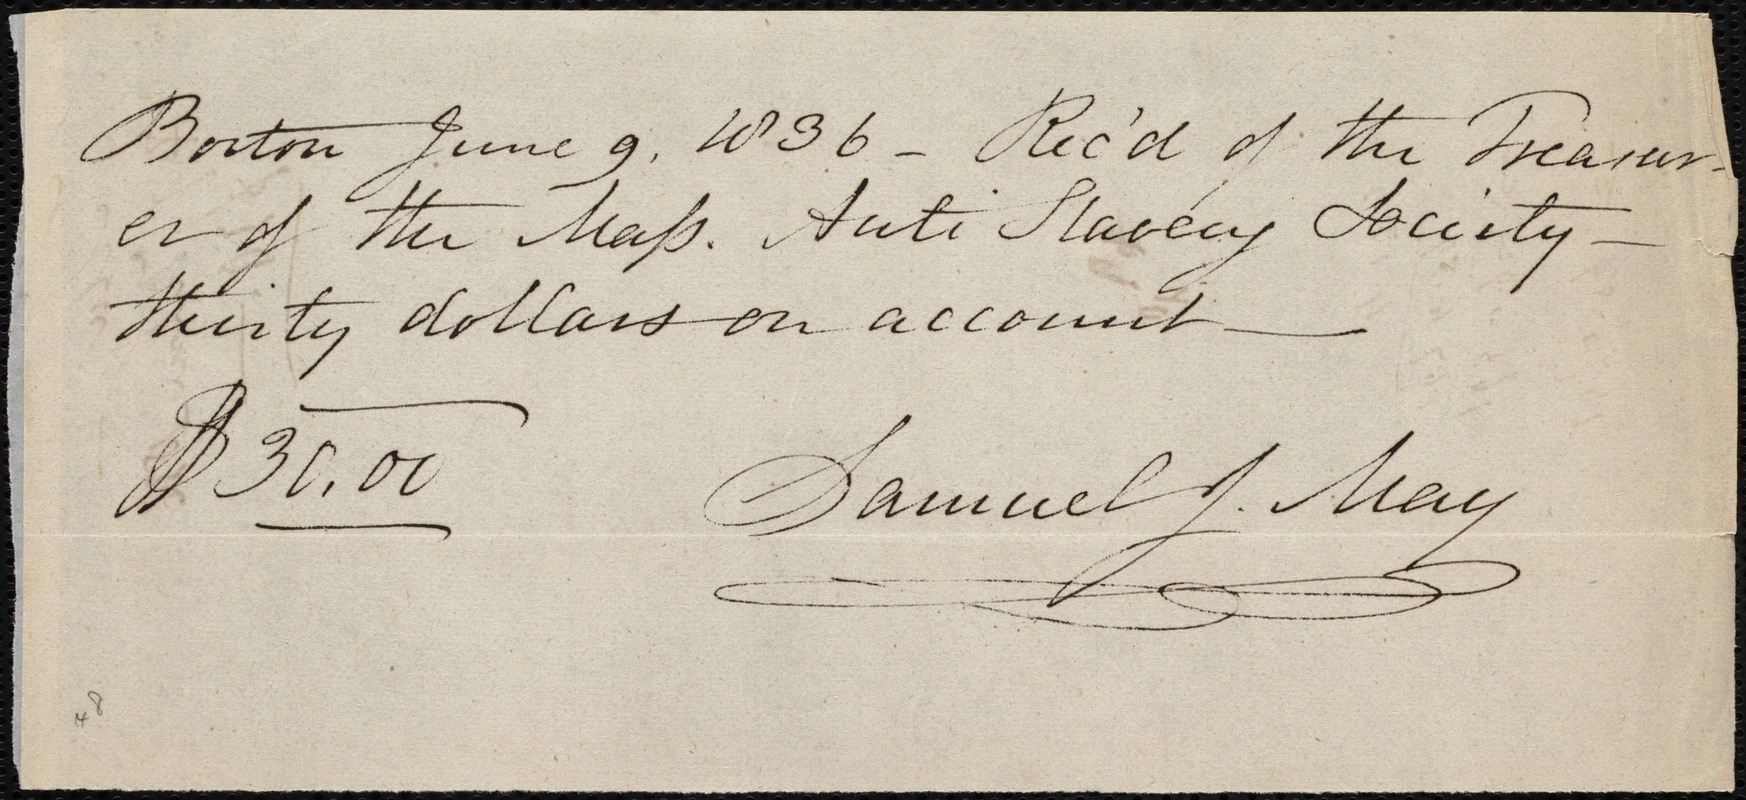 Boston June 9. 1836 - Rec'd of the Treasur-
er of the Mass. Anti Slavery Society -
thirty dollars on account —
$30.00
Samuel J. May
48